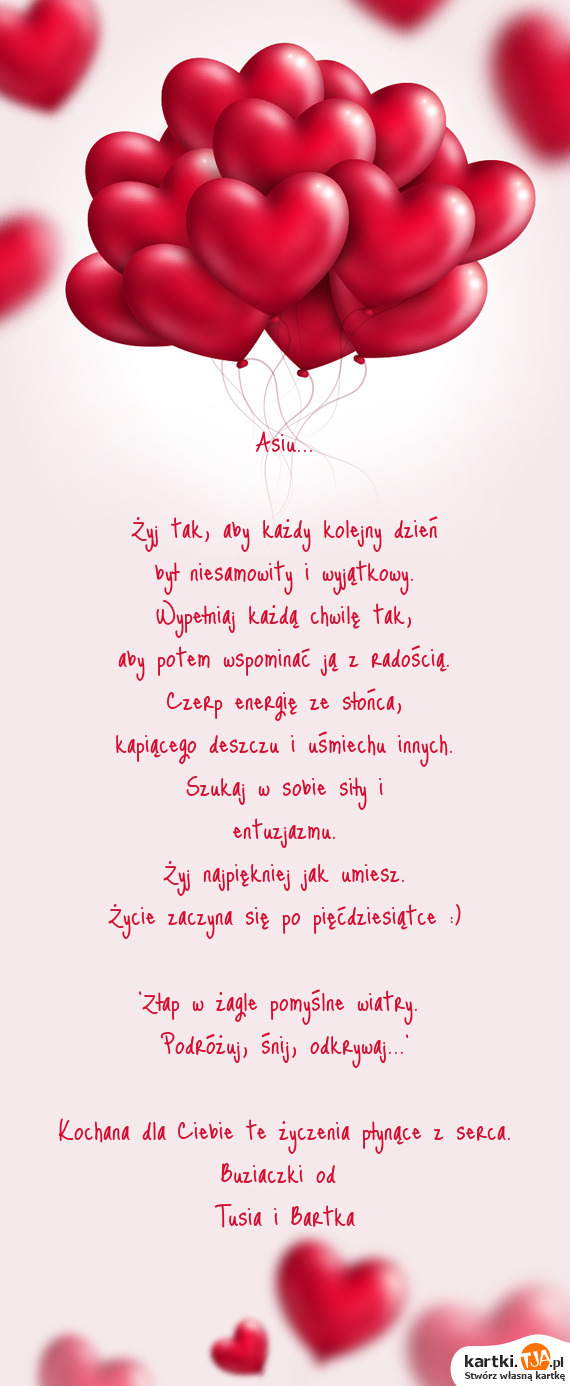 Asiu...
Żyj tak, aby każdy kolejny dzień
był niesamowity i wyjątkowy.
Wypełniaj każdą chwilę tak,
aby potem wspominać ją z radością.
Czerp energię ze słońca,
kapiącego deszczu i uśmiechu innych.
Szukaj w sobie siły i
entuzjazmu.
Żyj najpiękniej jak umiesz.
Życie zaczyna się po pięćdziesiątce :)
"Złap w żagle pomyślne wiatry.
Podróżuj, śnij, odkrywaj..."
Kochana dla Ciebie te życzenia płynące z serca.
Buziaczki od
Tusia i Bartka
kartki.TJA.pl
Stwórz własną kartkę